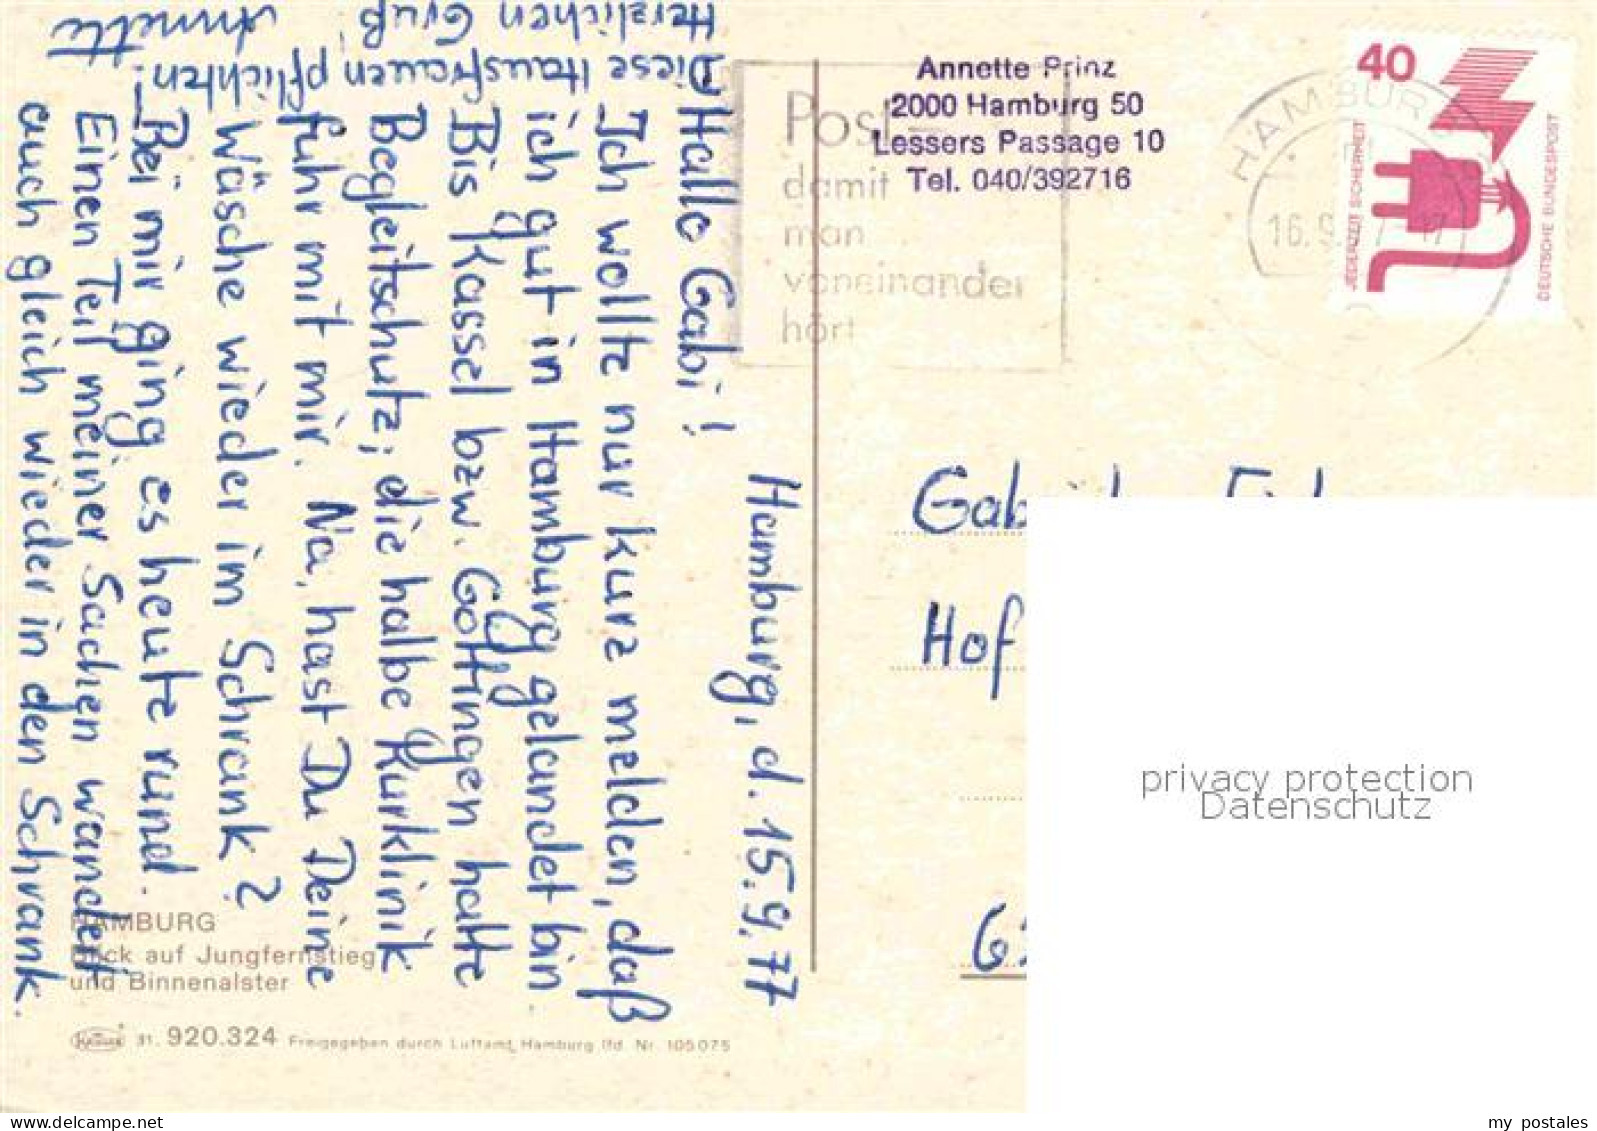 Hamburg, d. 15.9.77
Hallo Gabi!
Ich wollte nur kurz melden, daß
ich gut in Hamburg gelandet bin.
Bis Kassel bzw. Göttingen hatte
Begleitschutz; die halbe Kurklinik
fuhr mit mir. Na, hast Du Deine
Wäsche wieder im Schrank?
Bei mir ging es heute rund.
Einen Teil meiner Sachen wandert
auch gleich wieder in den Schrank.
Diese Hausfrauenpflichten!
Herzlichen Gruß!
Annette
Annette Prinz
2000 Hamburg 50
Lessers Passage 10
Tel. 040/392716
Post
damit
man
voneinander
hört
HAMBURG
16.9.
17
40
JEDERZEIT SICHERHEIT
DEUTSCHE BUNDESPOST
Hof
privacy protection
Datenschutz
HAMBURG
Blick auf Jungfernstieg
und Binnenalster
31. 920.324 Freigegeben durch Luftamt Hamburg lfd. Nr. 105075
my postales